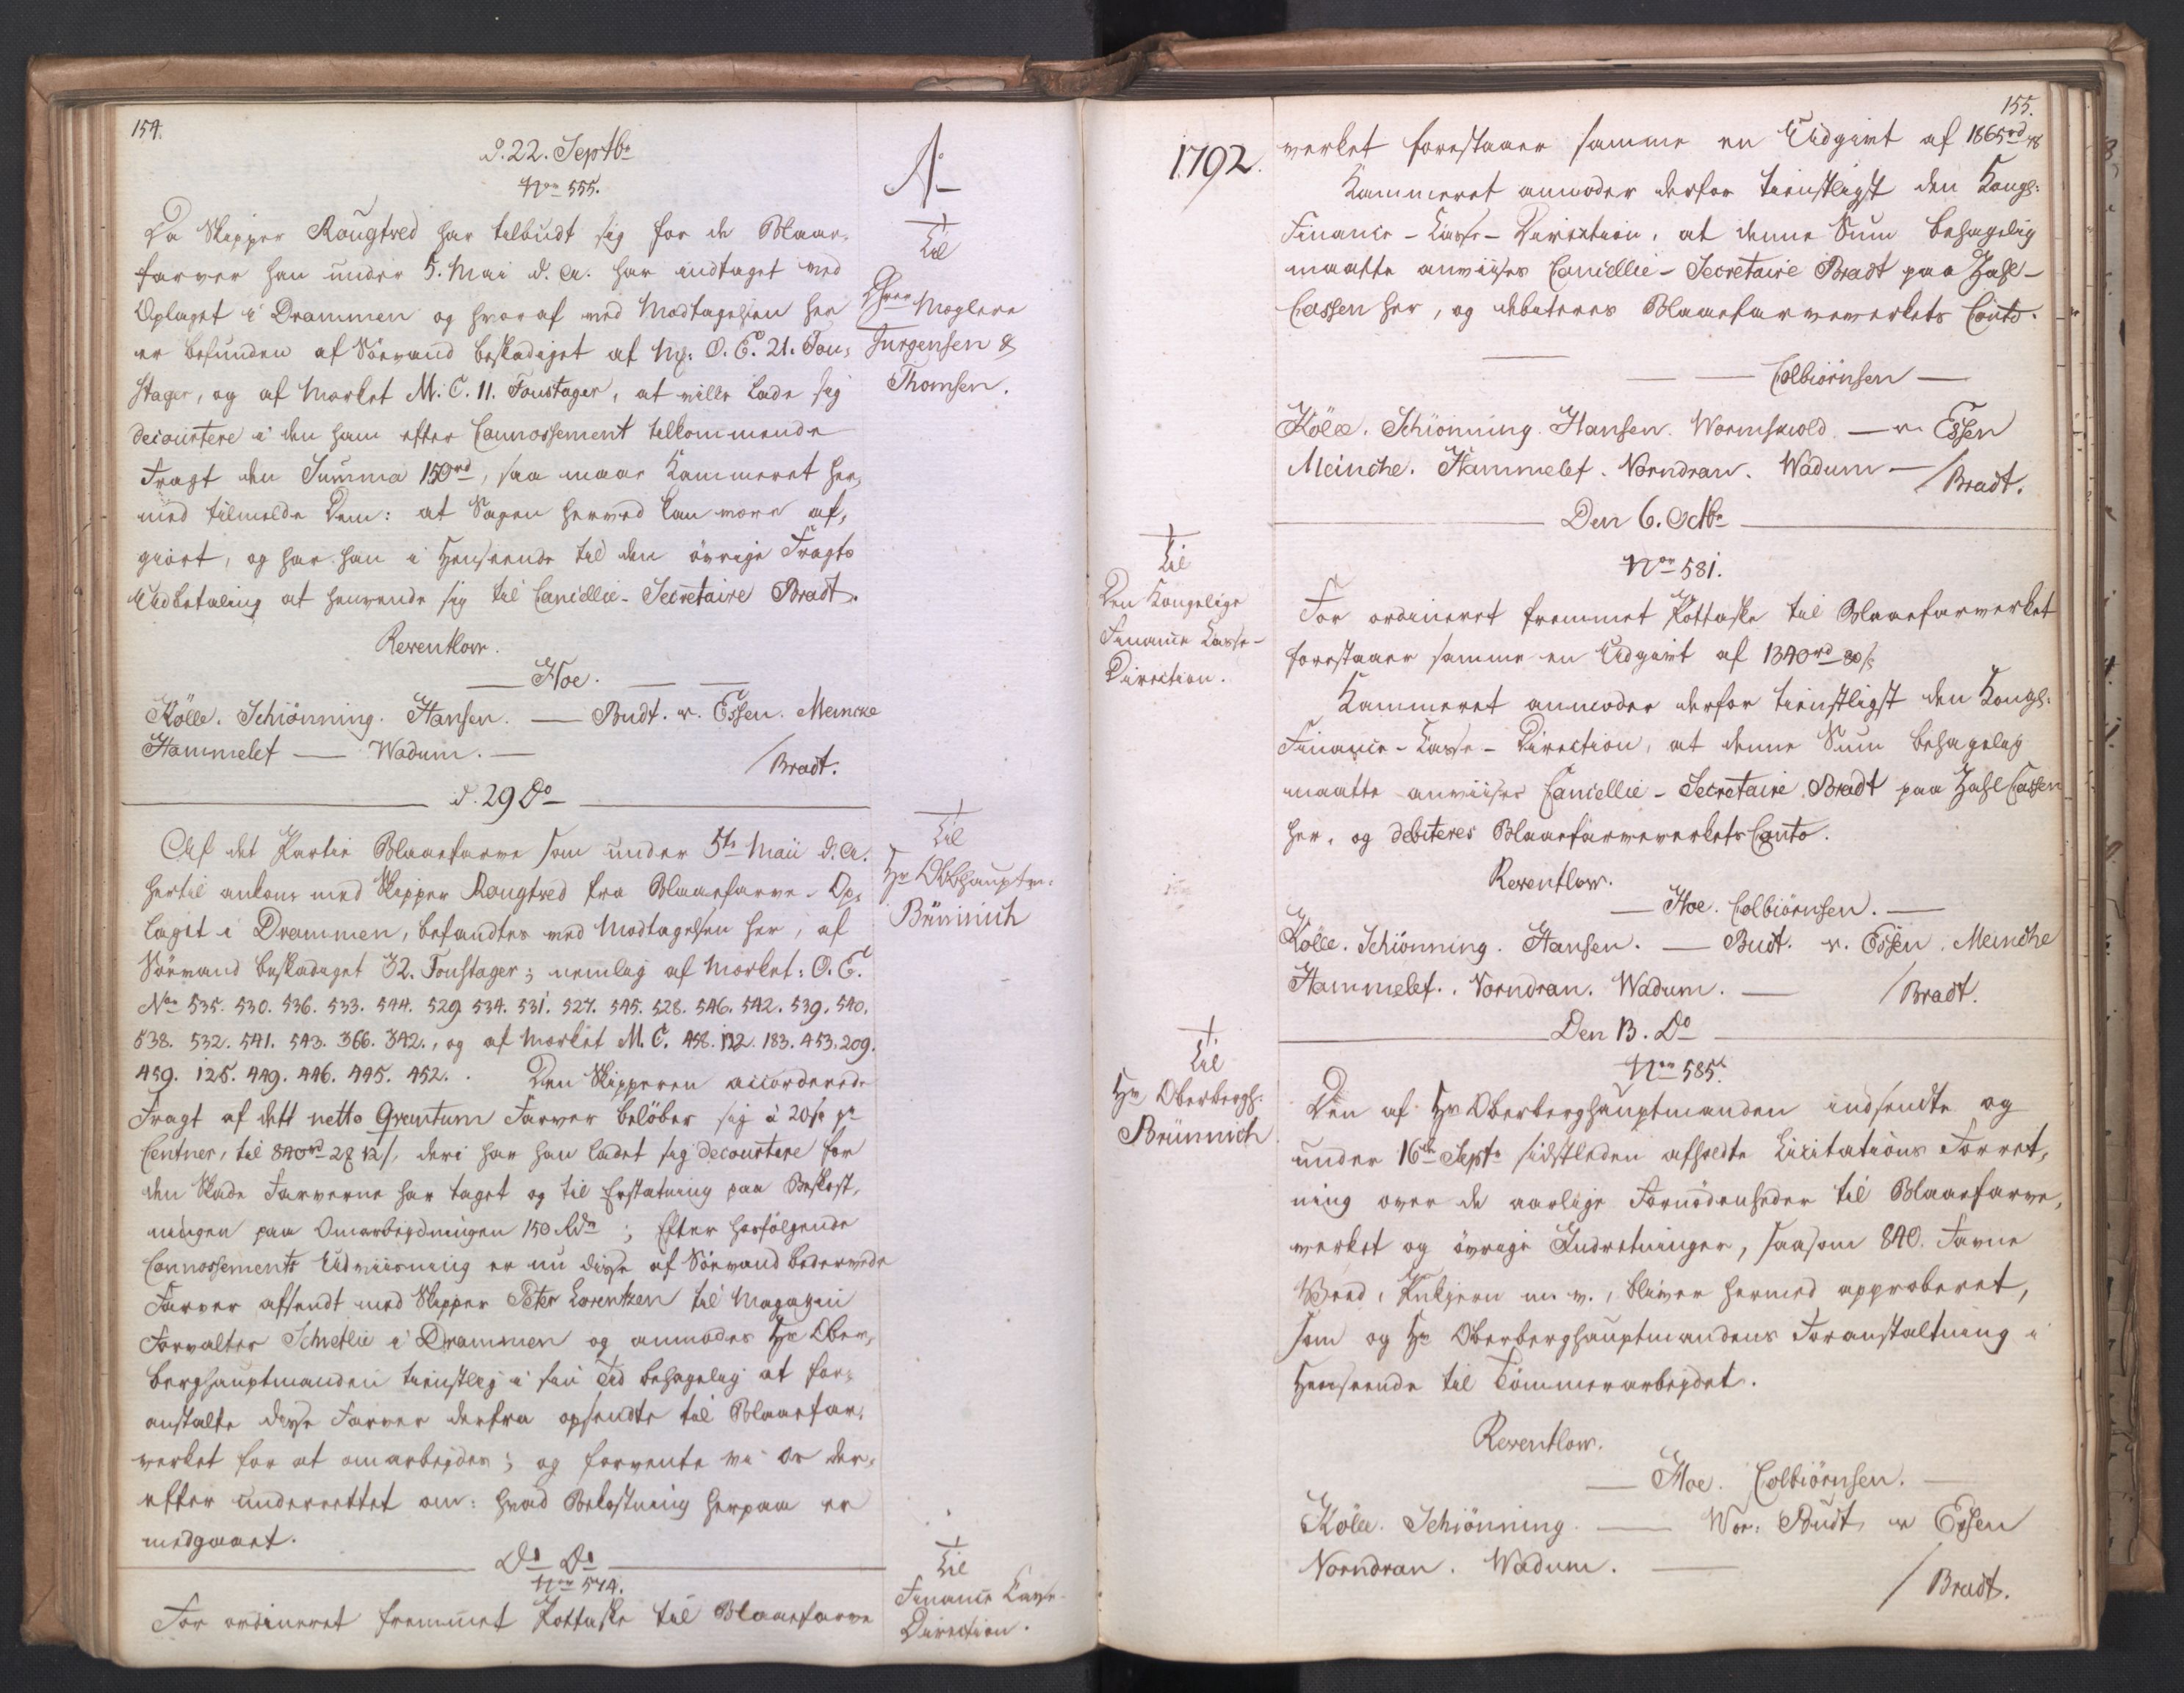 154.
d. 22. Septbr
No 555.
Da Skipper Rougtved har tilbudt sig for de Blaae-
farver han under 5. Mai d. A. har indtaget ved
Oplaget i Drammen og hvoraf ved Modtagelsen her
er befunden af Söevand beskadiget af Mk: O. E. 21. Fou-
stager, og af Mærket M. C. 11. Foustager, at ville lade sig
decourtere i den ham efter Connossement tilkommende
Fragt den Summa 150 rd, saa maae Kammeret her-
med tilmelde Dem: at Sagen herved kan være af-
giort, og har han i Henseende til den övrige Fragts
Udbetaling at henvende sig til Cancellie-Secretaire Bradt.
Reventlow.
— Hoe. — —
Kölle. Schiönning. Hansen. — Budt. v. Essen. Meincke
Hammelef — Wadum. —
/Bradt.
Til
Hrr Mæglere
Jurgensen &
Thomsen.
d. 29 Do
Af det Partie Blaaefarve som under 5te Maii d. A.
hertil ankom med Skipper Rougtved fra Blaaefarve-Op-
laget i Drammen, befandtes ved Modtagelsen her, af
Söevand beskadiget 32. Foustager; nemlig af Mærket: O. E.
No 535. 530. 536. 533. 544. 529. 534. 531. 527. 545. 528. 546. 542. 539. 540.
538. 532. 541. 543. 366. 342., og af Mærket M. C. 458. 122. 183. 453. 209.
459. 125. 449. 446. 445. 452. Den Skipperen accorderede
Fragt af dett netto Qvantum Farver belöber sig á 20 s pr
Centner, til 840 rd 2 12 s, deri har han ladet sig decourtere for
den Skade Farverne har taget og til Erstatning paa Bekost-
ningen paa Omarbeydningen 150 Rdr; Efter hosfölgende
Connossements Udviisning er nu disse af Söevand bedervede
Farver afsendt med Skipper Peter Lorentzen til Magazin
Forvalter Schietlie i Drammen og anmodes Hr Ober-
berghauptmanden tienstlig i sin Tid behagelig at for-
anstalte disse Farver derfra opsendte til Blaaefar-
verket for at omarbejdes; og forvente vi os der-
efter underrettet om: hvad Bekostning herpaa er
medgaaet.
Til
Hr Obbhauptm:
Brünnich
Do Do
No 574.
For ordineret fremmet Pottaske til Blaaefarve
Til
Finance Casse-
Direction.
155.
1792.
verket forestaaer samme en Udgivt af 1865 rd 48
Kammeret anmoder derfor tienstligst den Kongl:
Finance-Casse-Direction, at denne Sum behagelig
maatte anviises Cancellie-Secretaire Bradt paa Zahl-
Cassen her, og debiteres Blaaefarveverkets Conto.
— — Colbiörnsen —
Kölle. Schiönning. Hansen. Wormskiold — v. Essen
Meincke. Hammelef. Norndran. Wadum —
/Bradt.
Den 6. Octbr
No 581.
Til
Den Kongelige
Finance Casse-
Direction.
For ordineret fremmet Pottaske til Blaaefarverket
forestaaer samme en Udgivt af 1340 rd 80 s
Kammeret anmoder derfor tienstligst den Kongl:
Finance-Casse-Direction, at denne Sum behagelig
maatte anviises Cancellie-Secretaire Bradt paa Zahl Cassen
her, og debiteres Blaaefarveverkets Conto.
Reventlow.
— Hoe. Colbiörnsen. —
Kölle. Schiönning. Hansen. — Budt. v. Essen. Meincke
Hammelef. Norndran. Wadum. —
/Bradt.
Den 13. Do
No 585.
Til
Hr Oberbergh:
Brünnich
Den af Hr Oberberghauptmanden indsendte og
under 16de Septr sidstleden afholdte Licitations Forret-
ning over de aarlige Fornödenheder til Blaaefarve-
verket og övrige Indretninger, saasom 840. Favne
Veed, m. v., bliver hermed approberet,
som og Hr Oberberghauptmandens Foranstaltning i
Henseende til Tömmerarbejdet.
Reventlow.
— Hoe. Colbiörnsen. —
Kölle. Schiönning. — Wor: Budt v Essen
Norndran. Wadum. —
/Bradt.